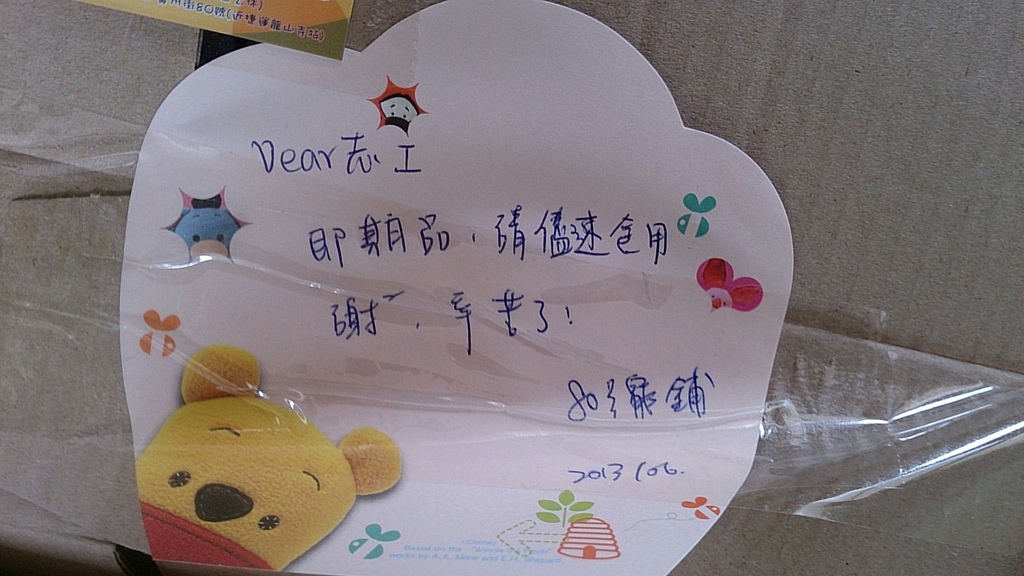 街80號(近捷運龍山寺站)
Dear志工
即期品,請儘速食用
謝~,辛苦了!
鋪
2013/06.
©Disney
Based on the "Winnie the Pooh"
works by A.A. Milne and E.H. Shepard.